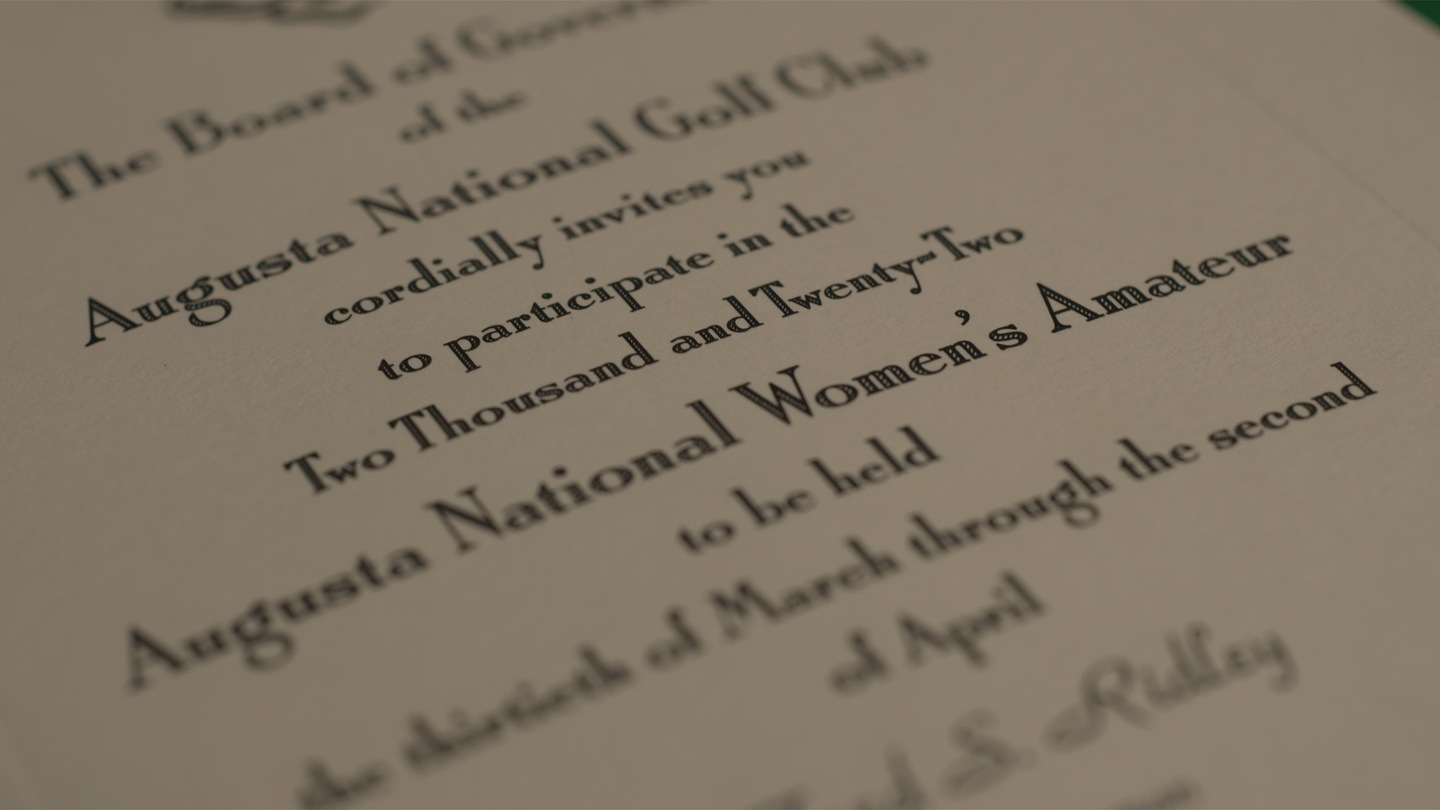 The Board of Governors
of the
Augusta National Golf Club
cordially invites you
to participate in the
Two Thousand and Twenty-Two
Augusta National Women's Amateur
to be held
the thirtieth of March through the second
of April
S. Ridley